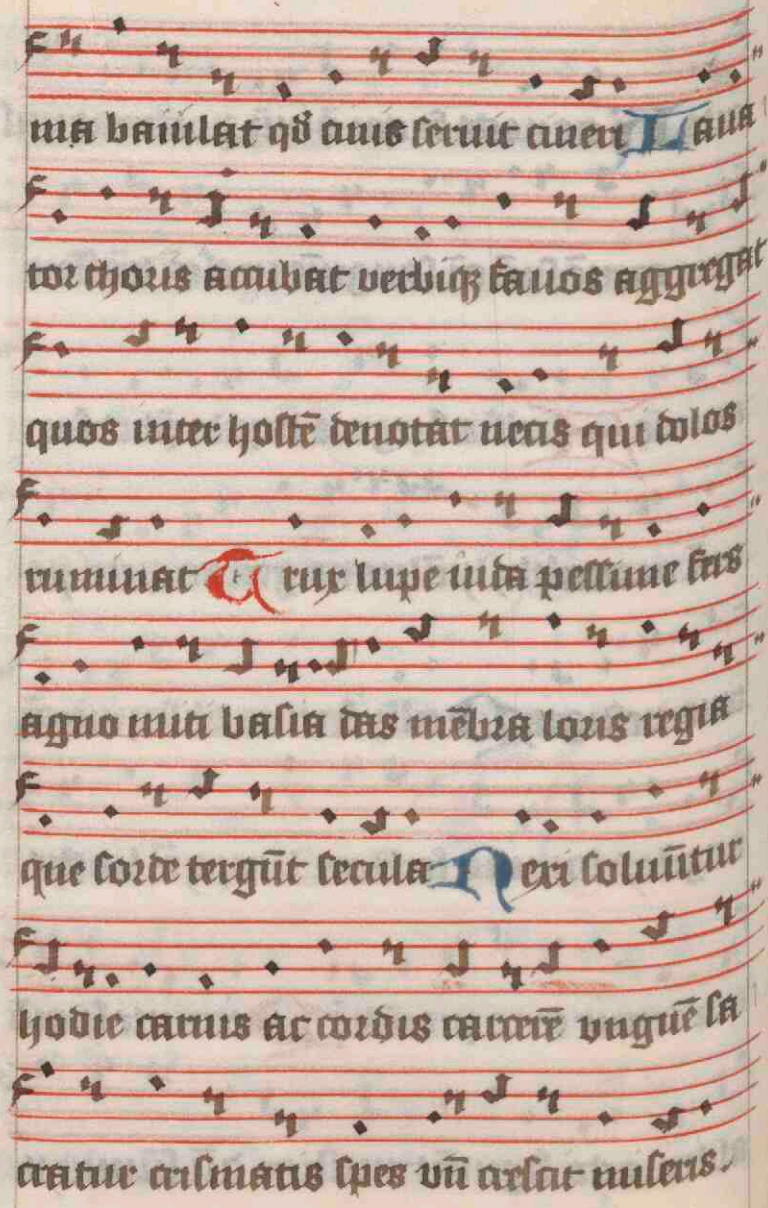 ma baiulat qď ciuis seruit ciueri Laua
tor thoris accubat verbiqꝫ fauos aggregat
quos inter hostē denotat necis qui dolos
ruminat Trux lupe iuda pessime fers
agno miti basia das mēbra loris regia
que sorde tergūt secula Nexi soluūtur
hodie carnis ac cordis carcerē vnguē sa
cratur crismatis spes vn̄ crescit miseris.